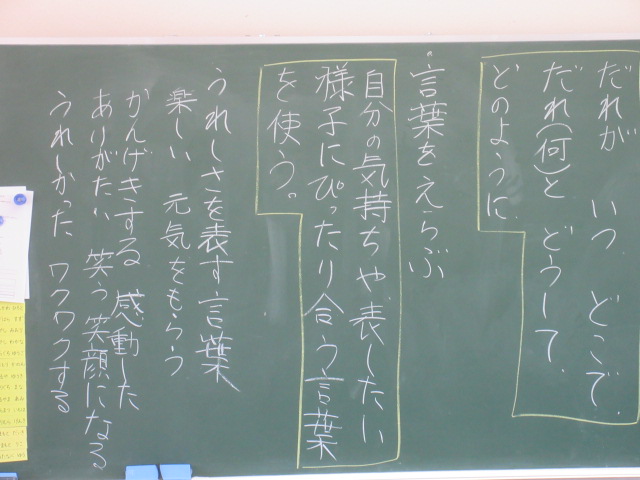 だれが いつ どこで.
だれ(何)と どうして.
どのように.
・言葉をえらぶ
自分の気持ちや、表したい
様子にぴったり合う言葉
を使う。
うれしさを表す言葉
楽しい 元気をもらう
かんげきする 感動した
ありがたい 笑う 笑顔になる
うれしかった ワクワクする